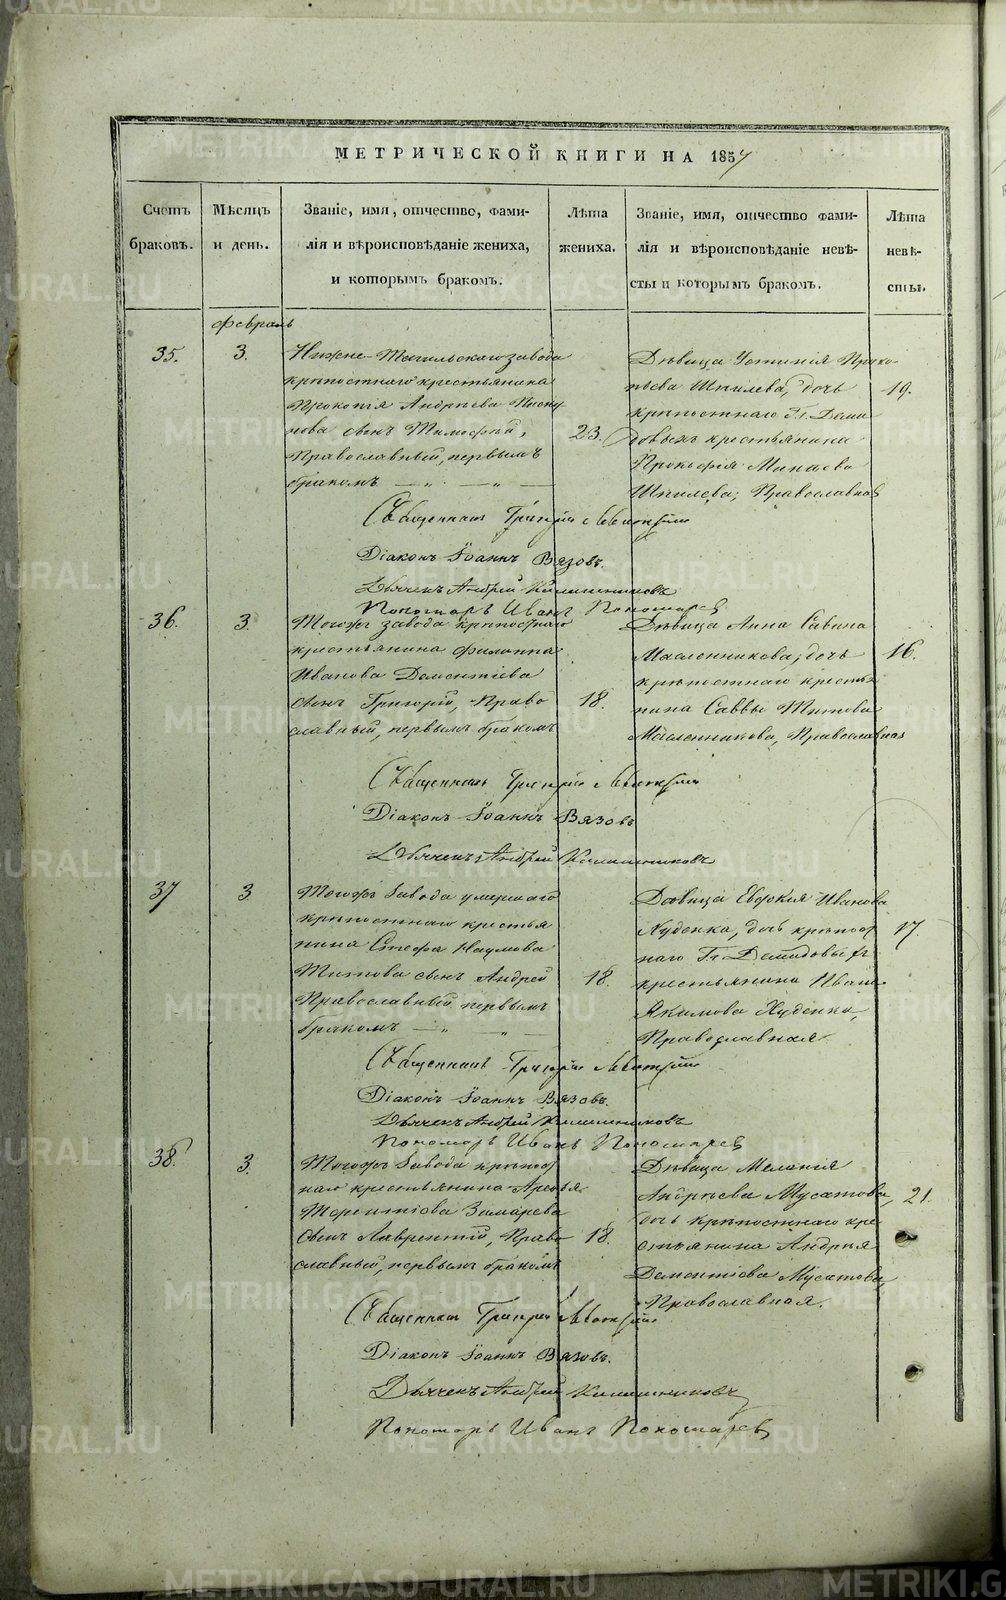 МЕТРИЧЕСКОЙ КНИГИ НА 1857
Счетъ
браковъ.
Мѣсяцъ
и день.
Званіе, имя, отчество, фами-
лія и вѣроисповѣданіе жениха,
и которымъ бракомъ.
Лѣта
жениха.
Званіе, имя, отчество фами-
лія и вѣроисповѣданіе невѣ-
сты и которымъ бракомъ.
Лѣта
невѣ-
сты.
Февраль
35.
3.
Нижне-Тагильскаго завода
крѣпостнаго крестьянина
Прокопія Андрѣева
сынъ Тимофей,
Православный, первымъ
бракомъ — „ — „ —
23.
Дѣвица Устинія Проко-
пьева Шпилева, дочь
крѣпостнаго Гг. Деми
довыхъ крестьянина
Прокофія Минаева
Шпилева, Православная
19.
Священникъ Григорій
Діаконъ Іоаннъ Вязовъ.
Дьячекъ Андрей
Пономарь Иванъ Пономаревъ
36.
3.
Тогожъ завода крѣпостнаго
крестьянина Филиппа
Иванова Дементіева
сынъ Григорій, Право
славный, первымъ бракомъ
18.
Дѣвица Анна Савина
Масленникова, дочь
крѣпостнаго крестья
нина Саввы Титова
Масленникова, Православная
16.
Священникъ Григорій
Діаконъ Іоаннъ Вязовъ
Дьячекъ Андрей
37
3
Тогожъ Завода умершаго
крѣпостнаго крестья
нина Стефа Наумова
Титова сынъ Андрей
Православный первымъ
бракомъ — „ — „ —
18.
Дѣвица Евдокія Иванова
Худенка, дочь крѣпост
наго Гг. Демидовыхъ
крестьянина Ивана
Якимова Худенка,
Православная.
17.
Священникъ Григорій
Діаконъ Іоаннъ Вязовъ.
Дьячекъ Андрей
Пономарь Иванъ Пономаревъ
38.
3.
Тогожъ Завода крѣпост
наго крестьянина Арефья
Терентіова Замарева
сынъ Лаврентій, Право
славный, первымъ бракомъ
18.
Дѣвица Меланія
Андрѣева Мусатова,
дочь крѣпостнаго кре
стьянина Андрея
Дементіова Мусатова,
Православная.
21.
Священникъ Григорій
Діаконъ Іоаннъ Вязовъ.
Дьячекъ Андрей
Пономарь Иванъ Пономаревъ
METRIKI.GASO-URAL.RU